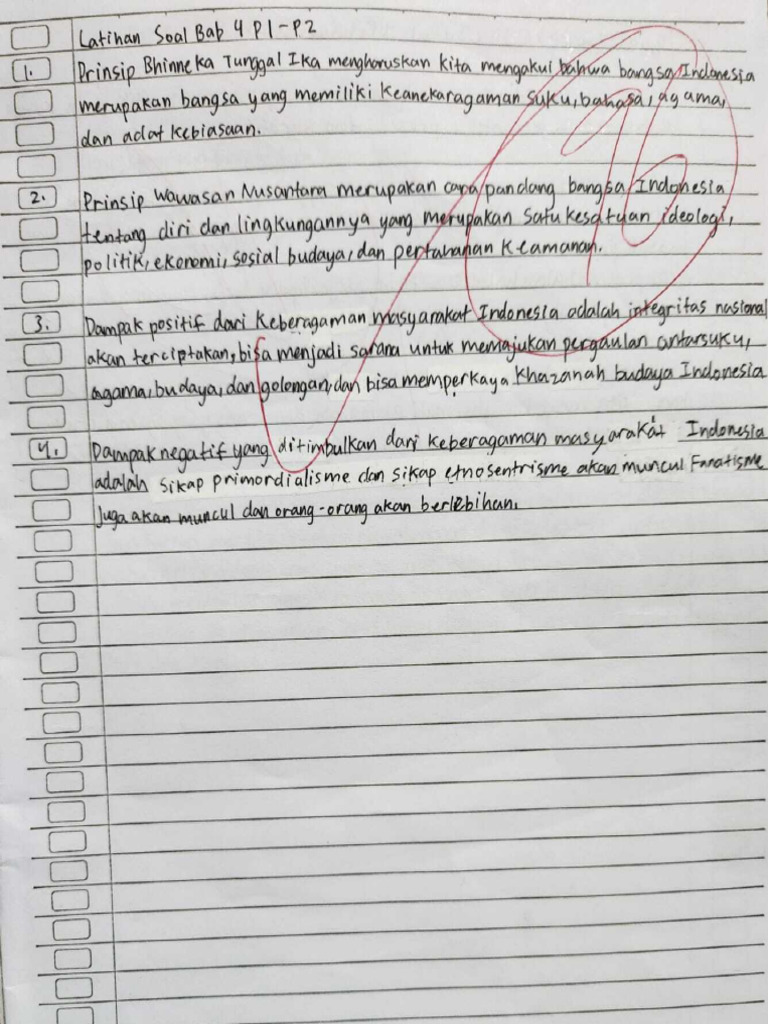 Latihan Soal Bab 4 P1-P2
1. Prinsip Bhinneka Tunggal Ika mengharuskan kita mengakui bahwa bangsa Indonesia
merupakan bangsa yang memiliki keanekaragaman suku, bahasa, agama,
dan adat kebiasaan.
2. Prinsip wawasan Nusantara merupakan cara pandang bangsa Indonesia
tentang diri dan lingkungannya yang merupakan satu kesatuan ideologi,
politik, ekonomi, sosial budaya, dan pertahanan keamanan.
3. Dampak positif dari keberagaman masyarakat Indonesia adalah integritas nasional
akan terciptakan, bisa menjadi sarana untuk memajukan pergaulan antarsuku,
agama, budaya, dan golongan, dan bisa memperkaya khazanah budaya Indonesia
4. Dampak negatif yang ditimbulkan dari keberagaman masyarakat Indonesia
adalah sikap primordialisme dan sikap etnosentrisme akan muncul Fanatisme
juga akan muncul dan orang-orang akan berlebihan.